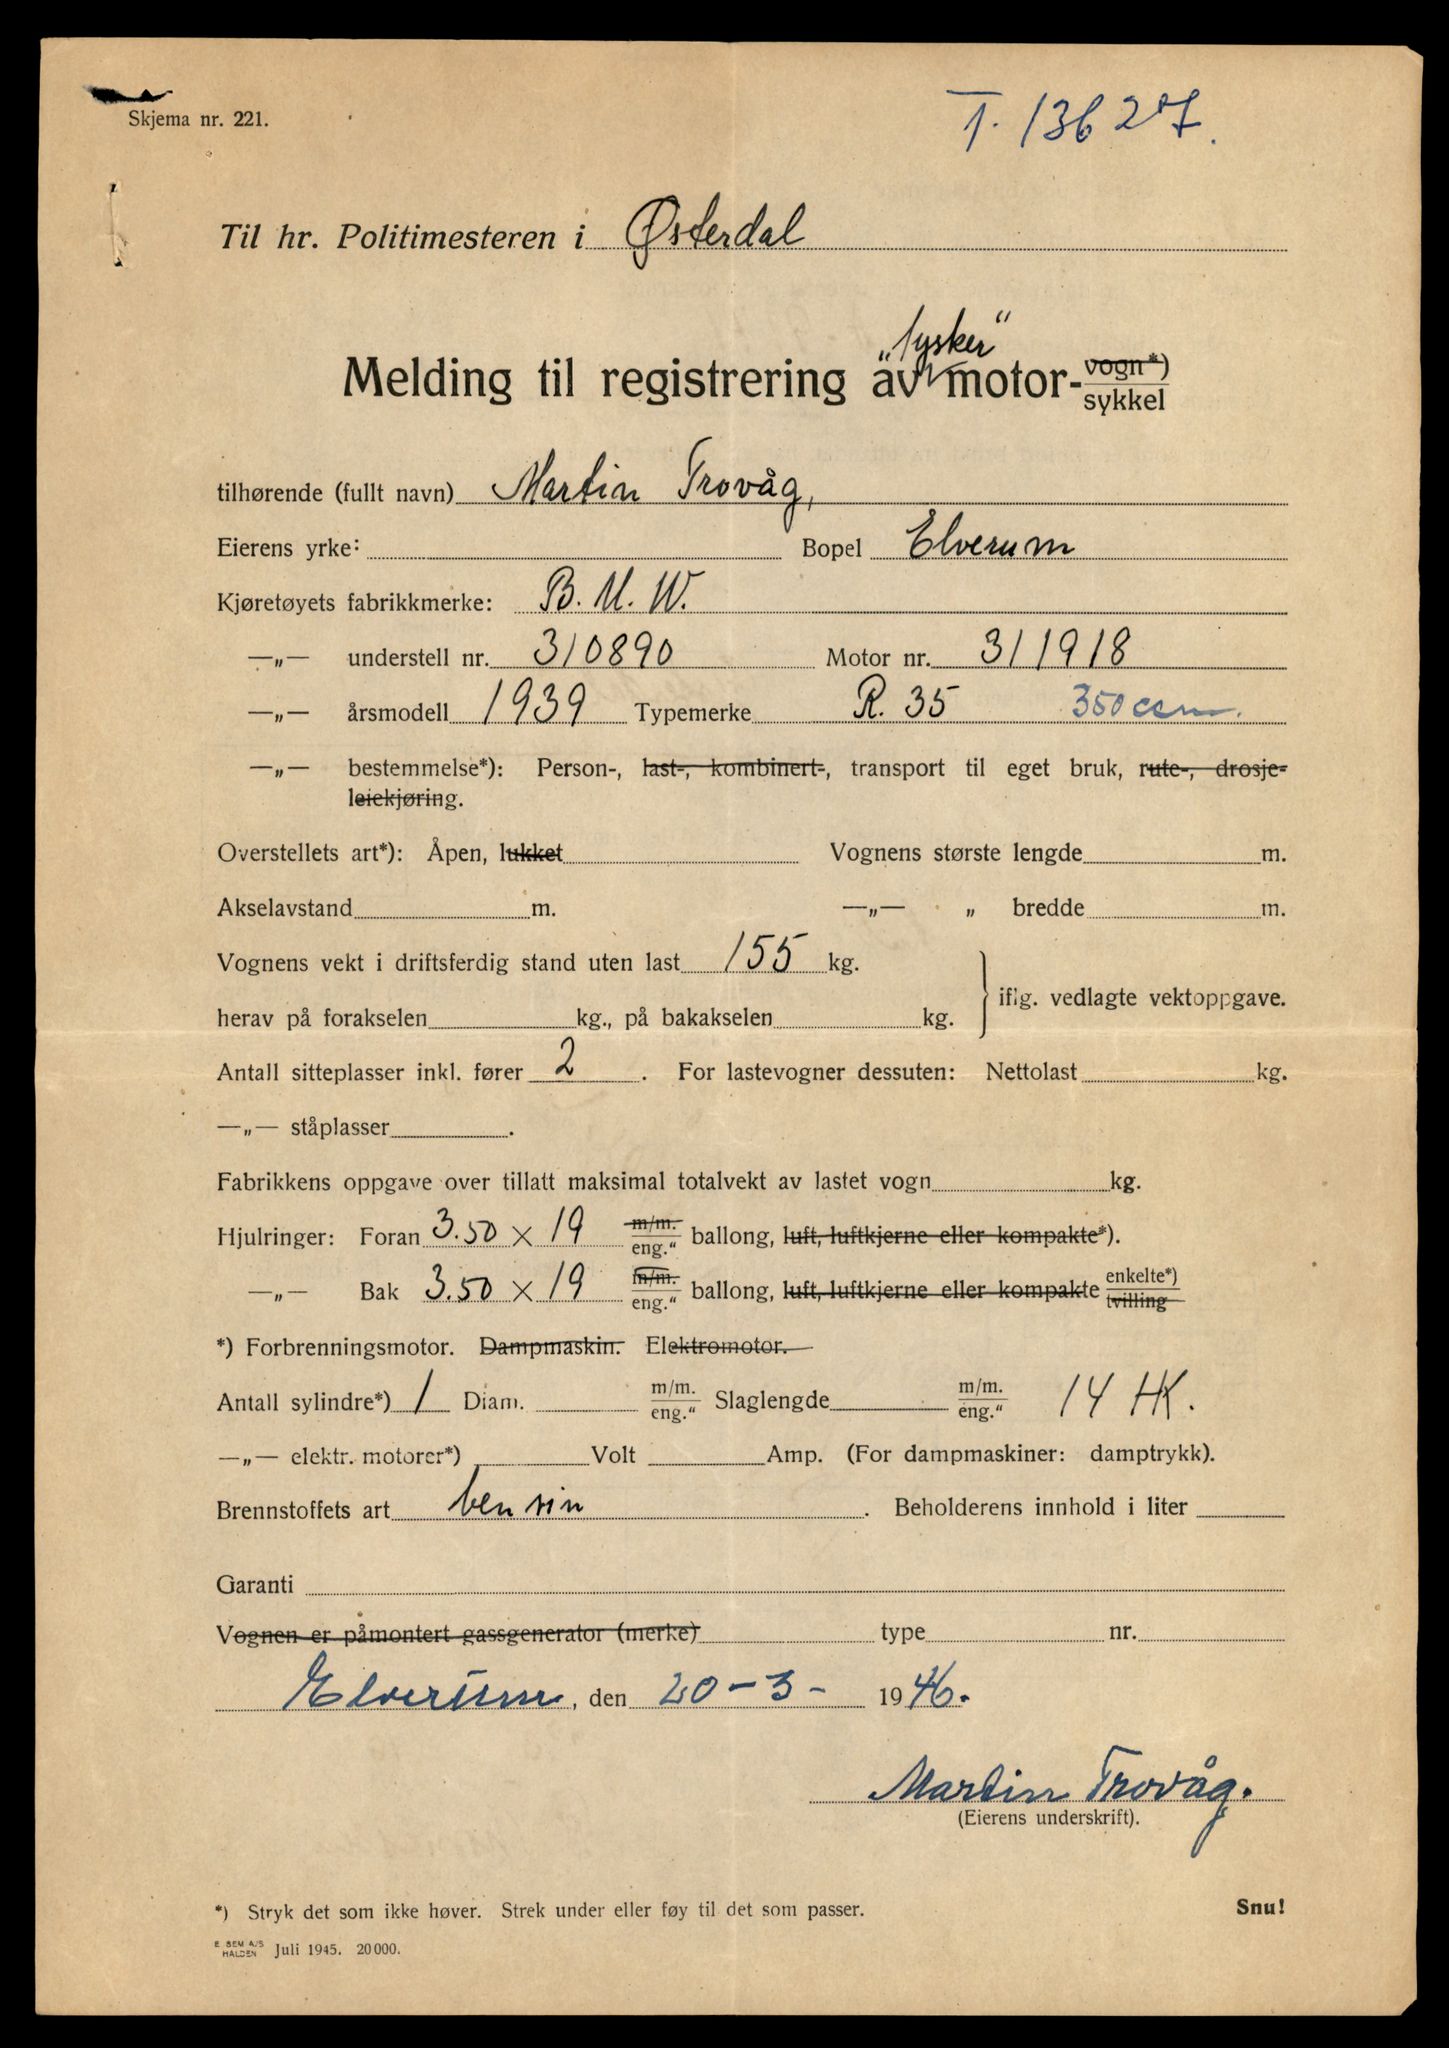 Skjema nr. 221.
T. 13627.
Til hr. Politimesteren i Østerdal
Melding til registrering av „tysker“ motor-vogn*) sykkel
tilhørende (fullt navn) Martin Trovåg,
Eierens yrke: Bopel Elverum
Kjøretøyets fabrikkmerke: B.M.W.
—„— understell nr. 310890 Motor nr. 311918
—„— årsmodell 1939 Typemerke R. 35 350 ccm.
—„— bestemmelse*): Person-, last-, kombinert-, transport til eget bruk, rute-, drosje-
leiekjøring.
Overstellets art*): Åpen, lukket Vognens største lengde m.
Akselavstand m. —„— „ bredde m.
Vognens vekt i driftsferdig stand uten last 155 kg.
iflg. vedlagte vektoppgave.
herav på forakselen kg., på bakakselen kg.
Antall sitteplasser inkl. fører 2. For lastevogner dessuten: Nettolast kg.
—„— ståplasser .
Fabrikkens oppgave over tillatt maksimal totalvekt av lastet vogn kg.
Hjulringer: Foran 3.50 × 19 m/m. eng.“ ballong, luft, luftkjerne eller kompakte*).
—„— Bak 3.50 × 19 m/m. eng.“ ballong, luft, luftkjerne eller kompakte enkelte*) tvilling
*) Forbrenningsmotor. Dampmaskin. Elektromotor.
Antall sylindre*) 1 Diam. m/m. eng.“ Slaglengde m/m. eng.“ 14 HK.
—„— elektr. motorer*) Volt Amp. (For dampmaskiner: damptrykk).
Brennstoffets art bensin. Beholderens innhold i liter
Garanti
Vognen er påmontert gassgenerator (merke) type nr.
Elverum, den 20-3- 1946.
Martin Trovåg.
(Eierens underskrift).
*) Stryk det som ikke høver. Strek under eller føy til det som passer.
Snu!
E. SEM A/S HALDEN Juli 1945. 20 000.